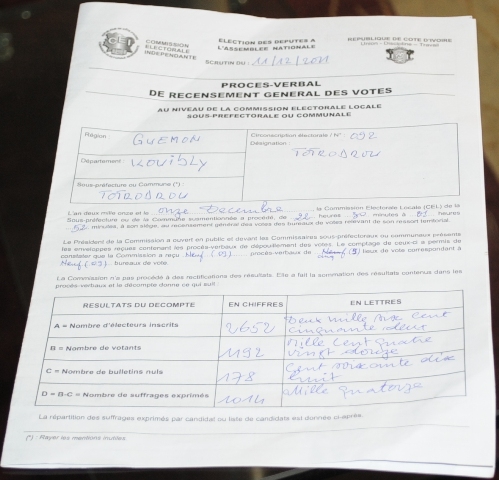 COMMISSION
ELECTORALE
INDEPENDANTE
ELECTION DES DEPUTES A
L'ASSEMBLEE NATIONALE
SCRUTIN DU : 11/12/2011
REPUBLIQUE DE COTE D'IVOIRE
Union - Discipline - Travail
PROCES-VERBAL
DE RECENSEMENT GENERAL DES VOTES
AU NIVEAU DE LA COMMISSION ELECTORALE LOCALE
SOUS-PREFECTORALE OU COMMUNALE
Région : GUEMON
Département : KOUIBLY
Sous-préfecture ou Commune (*) :
TOTRODROU
Circonscription électorale / N° : 092
Désignation :
TOTRODROU
L'an deux mille onze et le onze Decembre la Commission Electorale Locale (CEL) de la
Sous-préfecture ou de la Commune susmentionnée a procédé, de 22 heures 30 minutes à 01 heures
52 minutes, à son siège, au recensement général des votes des bureaux de votes relevant de son ressort territorial.
Le Président de la Commission a ouvert en public et devant les Commissaires sous-préfectoraux ou communaux présents
les enveloppes reçues contenant les procès-verbaux de dépouillement des votes. Le comptage de ceux-ci a permis de
constater que la Commission a reçu Neuf (09) procès-verbaux de cinq lieux de vote correspondant à
Neuf (09) bureaux de vote.
La Commission n'a pas procédé à des rectifications des résultats. Elle a fait la sommation des résultats contenus dans les
procès-verbaux et le décompte donne ce qui suit :
RESULTATS DU DECOMPTE EN CHIFFRES EN LETTRES
A = Nombre d'électeurs inscrits 2652 Deux mille six cent
cinquante deux
B = Nombre de votants 1192 Mille cent quatre
vingt douze
C = Nombre de bulletins nuls 178 Cent soixante dix
huit
D = B-C = Nombre de suffrages exprimés 1014 Mille quatorze
La répartition des suffrages exprimés par candidat ou liste de candidats est donnée ci-après.
(*) : Rayer les mentions inutiles.